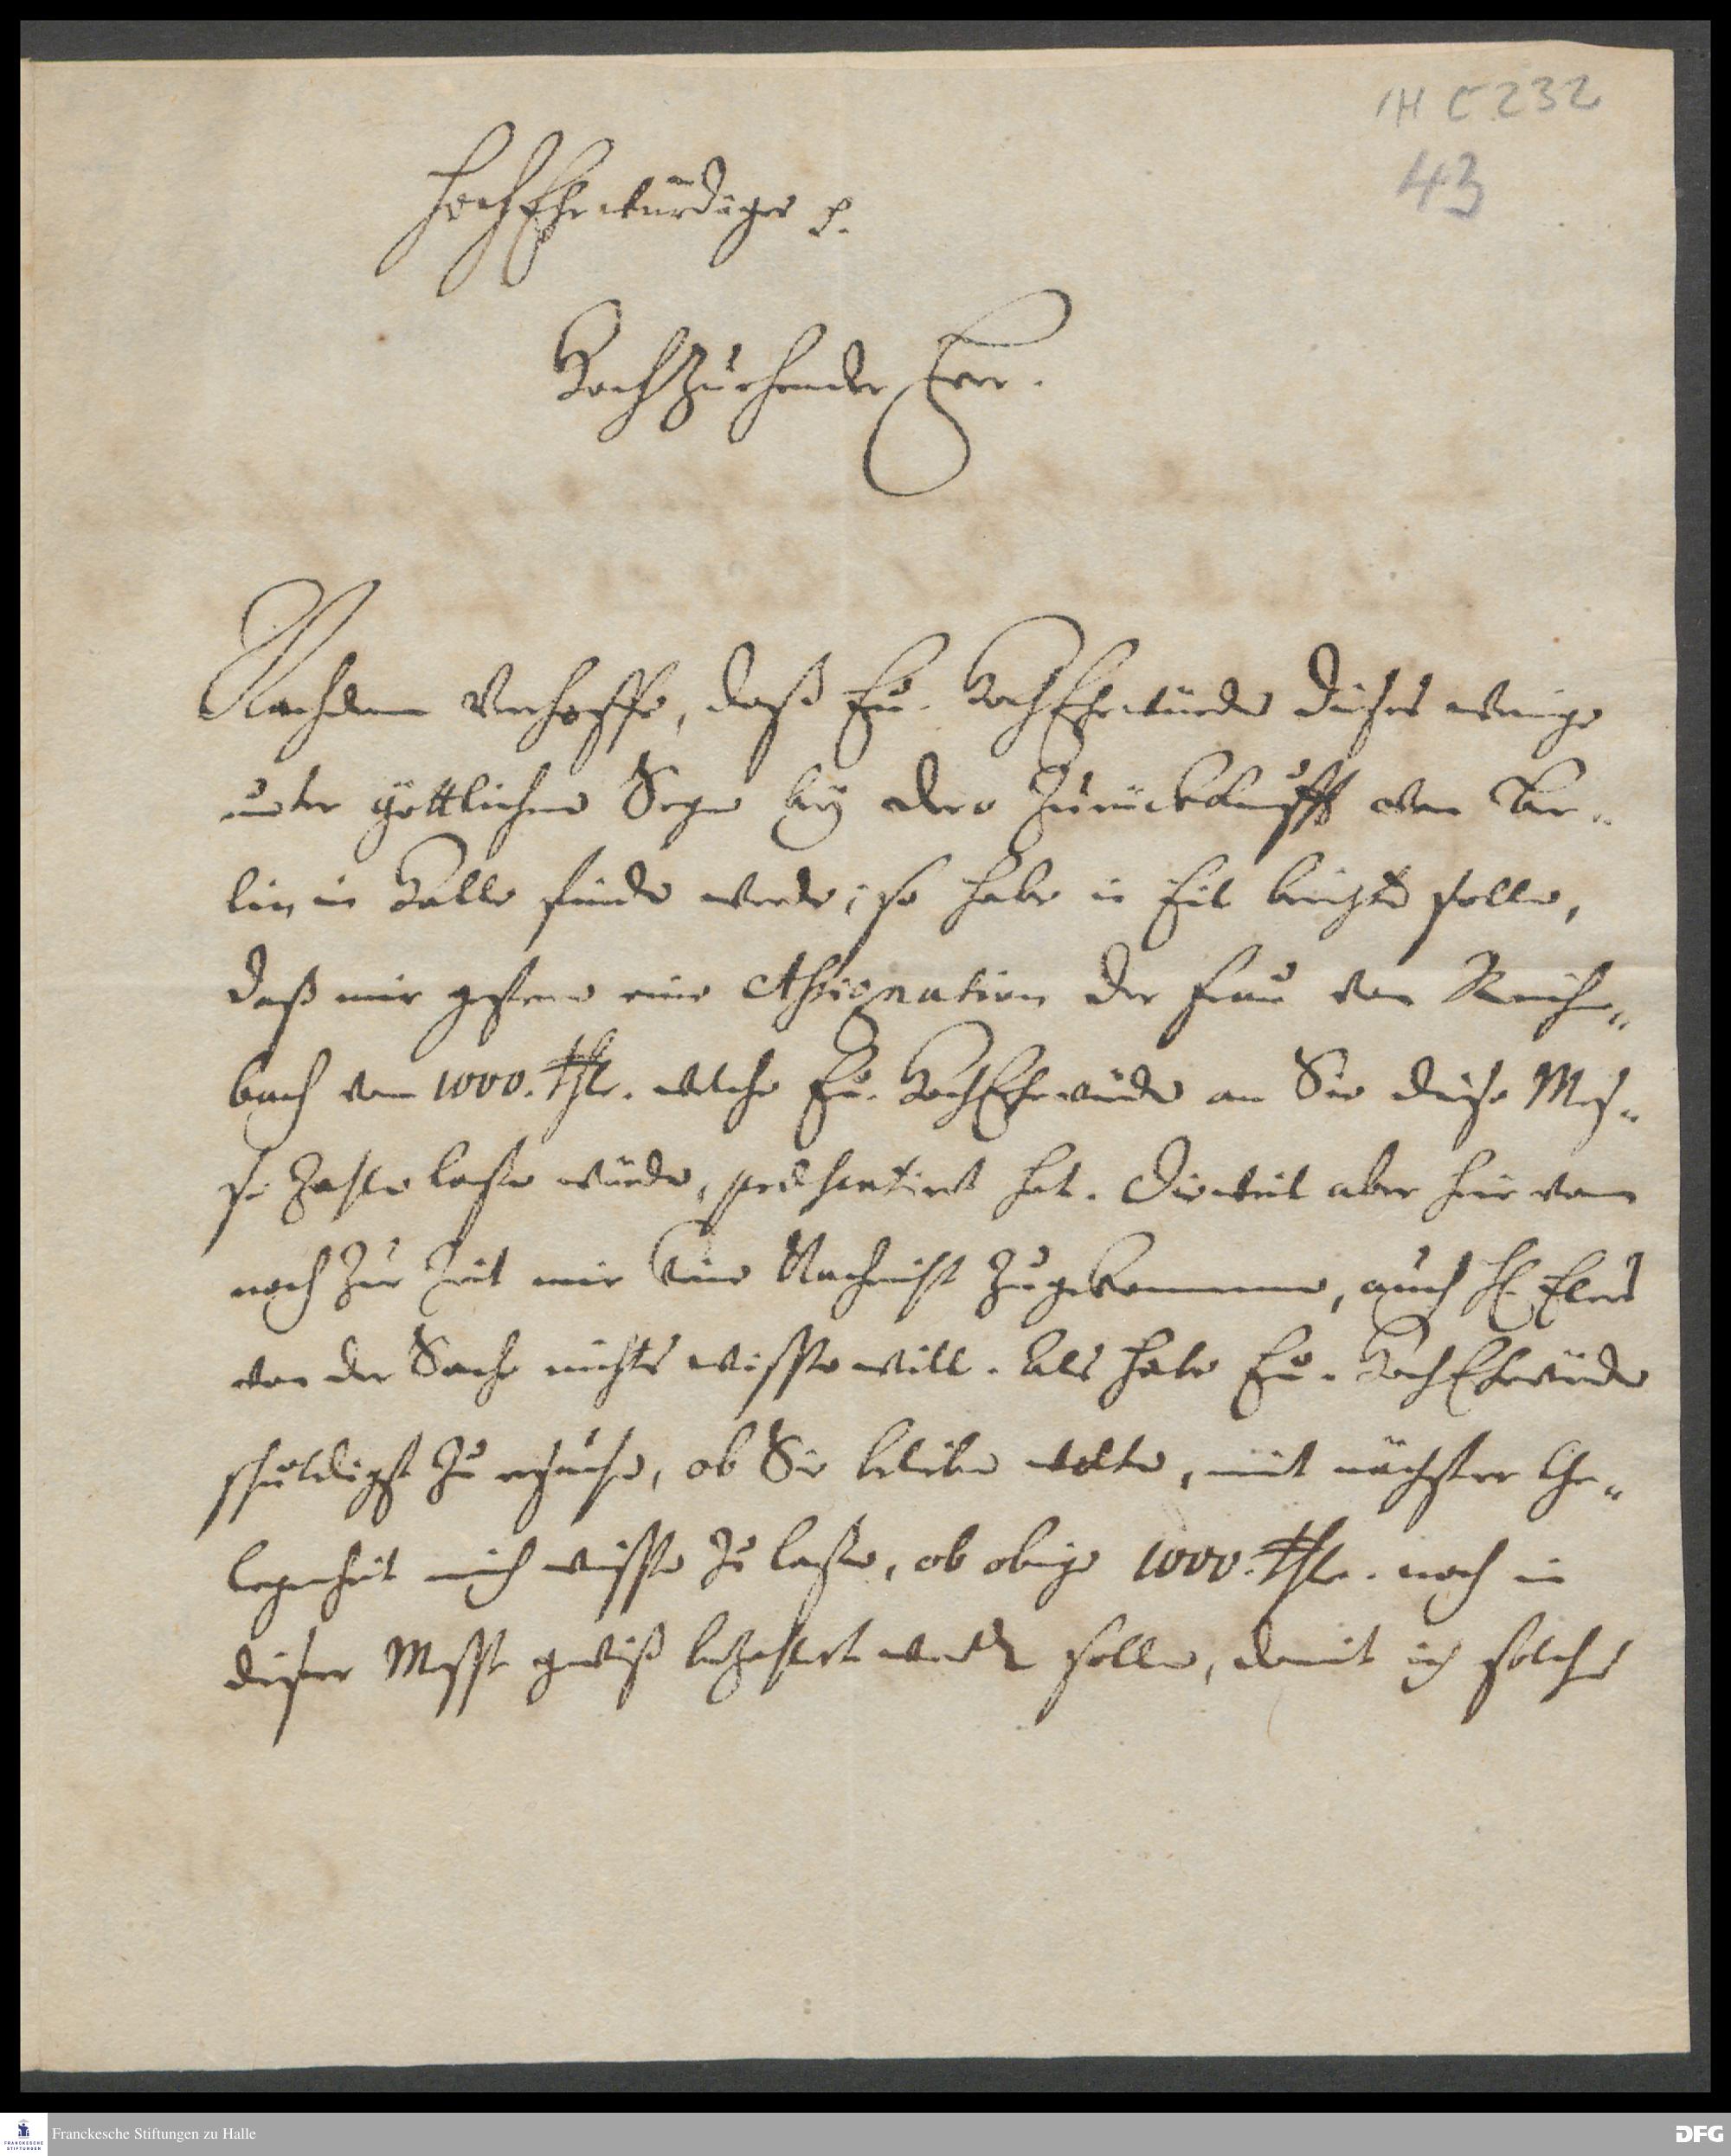 HC 232
43
HochEhrwürdiger p.
Hochzuehrender Herr.
Nachdem Verhoffe, daß Eu. HochEhrwürden dieses wenige
unter göttlichen Segen bey dero Zurückkunfft von Ber-
lin in Halle finden werde; so habe in Eil berichten sollen,
daß mir gestern eine Assignation der Frau von Reichen-
bach von 1000. Thlr. welche Eu. HochEhrwürden an Sie diese Mes-
se zahlen lassen würden, præsentiret hat. Dieweil aber hievon
noch zur Zeit mir keine Nachricht zugekommen, auch H. Elers
von der Sache nichts wissen will. Als habe Eu. HochEhrwürden
schuldigst zu ersuchen, ob Sie belieben wolten, mit nächster Ge-
legenheit mich wissen zu lassen, ob obige 1000. Thlr. noch in
dieser Messe gewiß bezahlet werden sollen, damit ich solches
Franckesche Stiftungen zu Halle
FRANCKESCHE
STIFTUNGEN
DFG